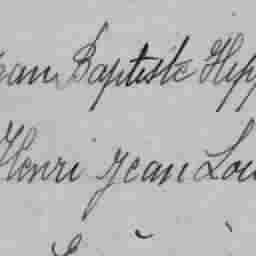 Jean Baptiste Hipp
Henri Jean Lou